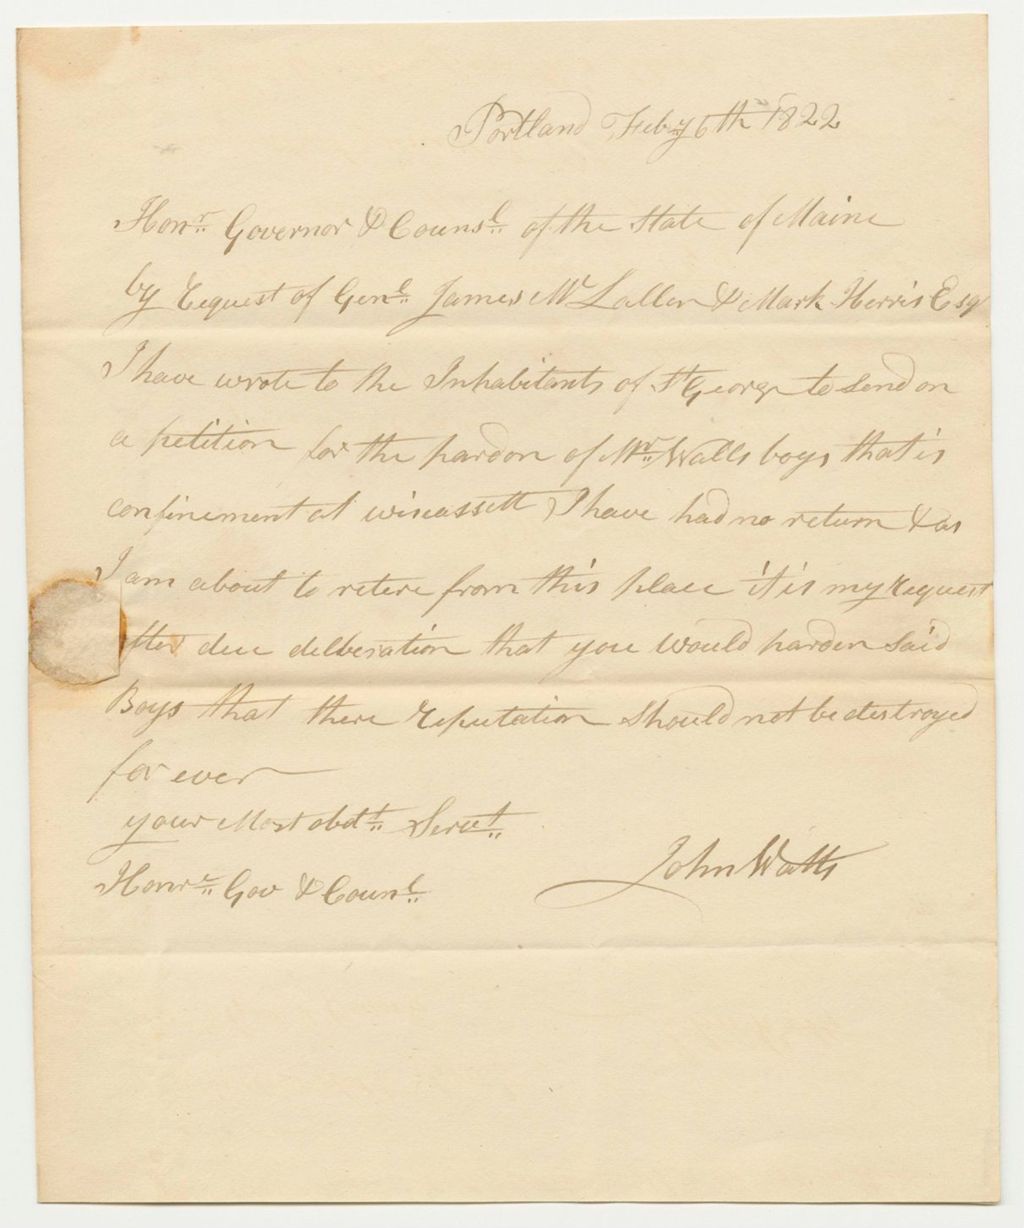 Portland Feby 6th 1822
Honr. Governor & Counsl. of the State of Maine
by request of Genl. James McLallen & Mark Herris Esq
I have wrote to the Inhabitants of St George to send on
a petition for the pardon of Mr. Walls boys that is
confinement at wiscassett I have had no return & as
I am about to retere from this place it is my request
after due delberation that you would parden said
Boys that there reputation should not be destroyed
for ever
your Most obdt. Servt.
Honr. Gov & Counl.
John Watts